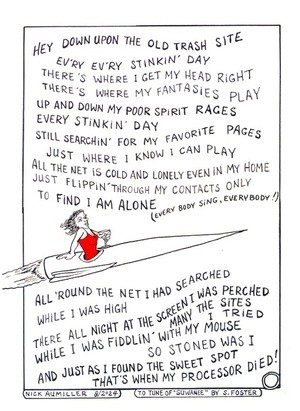 HEY DOWN UPON THE OLD TRASH SITE
EV'RY EV'RY STINKIN' DAY
THERE'S WHERE I GET MY HEAD RIGHT
THERE'S WHERE MY FANTASIES PLAY
UP AND DOWN MY POOR SPIRIT RAGES
EVERY STINKIN' DAY
STILL SEARCHIN' FOR MY FAVORITE PAGES
JUST WHERE I KNOW I CAN PLAY
ALL THE NET IS COLD AND LONELY EVEN IN MY HOME
JUST FLIPPIN' THROUGH MY CONTACTS ONLY
TO FIND I AM ALONE
(EVERY BODY SING, EVERYBODY!)
ALL 'ROUND THE NET I HAD SEARCHED
WHILE I WAS HIGH
THERE ALL NIGHT AT THE SCREEN I WAS PERCHED
MANY THE SITES I TRIED
WHILE I WAS FIDDLIN' WITH MY MOUSE
SO STONED WAS I
AND JUST AS I FOUND THE SWEET SPOT
THAT'S WHEN MY PROCESSOR DIED!
NICK AUMILLER 8/2024
TO TUNE OF "SUWANEE" BY S. FOSTER